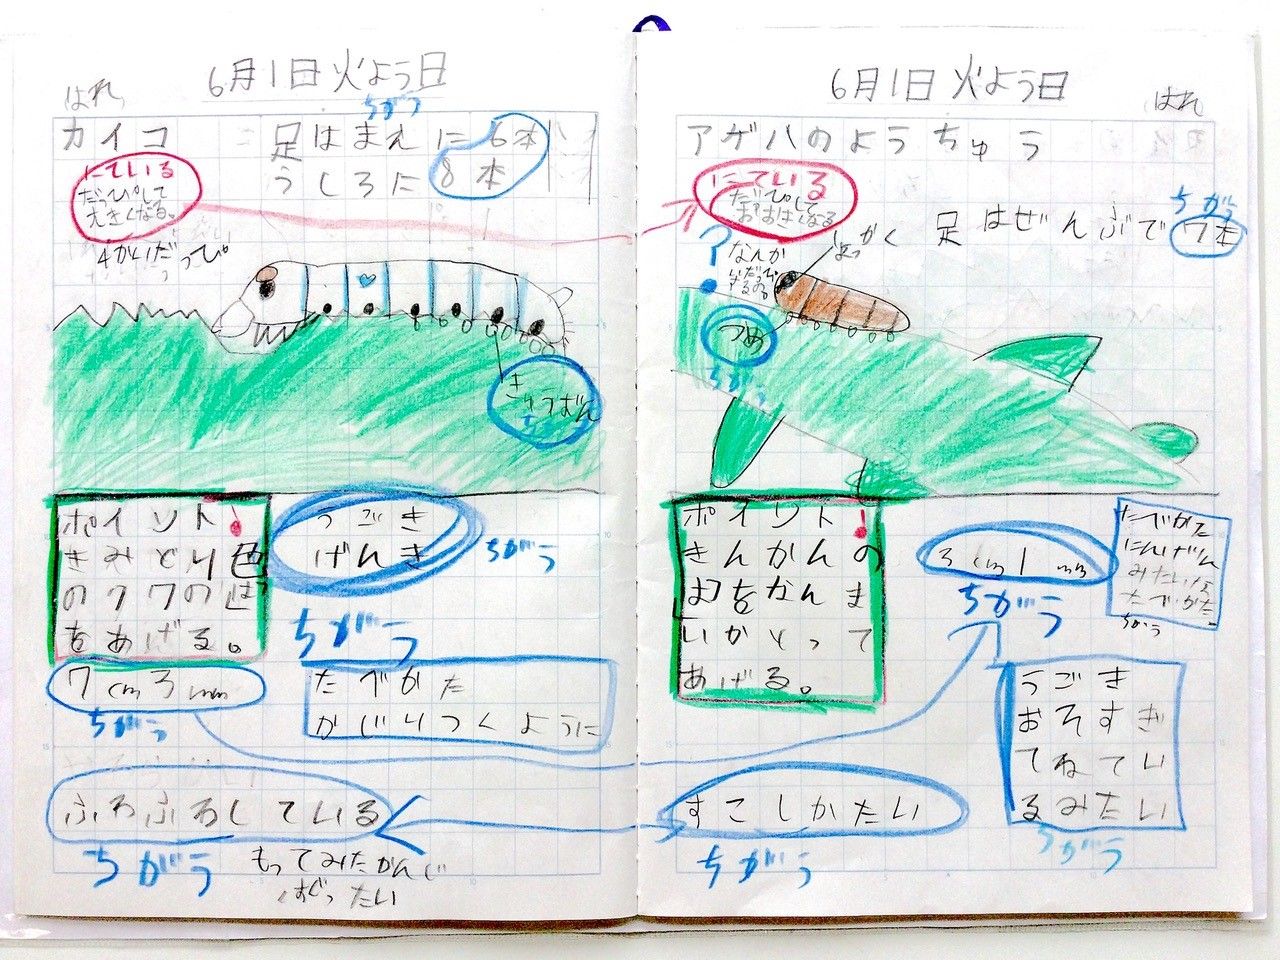 6月1日火よう日
はれ
ちがう
カイコ
足はまえに6本
うしろに8本
にている
だっぴして
大きくなる。
4かいだっぴ
きゅうばん
ちがう
ポイント!
きみどり色
のクワのは
をあげる。
うごき
げんき
ちがう
ちがう
7cm3mm
ちがう
たべかた
かじりつくように
ふわふわしている
ちがう
もってみたかんじ
くすぐったい
6月1日火よう日
はれ
アゲハのようちゅう
にている
だっぴして
おおきくなる
ちがう
足はぜんぶで7本
?
なんか
いだっぴ
するの。
しょっかく
つめ
ちがう
ポイント!
きんかんの
はをなんま
いかとって
あげる。
3cm1mm
ちがう
たべかた
にんげん
みたいな
たべかた
ちがう
うごき
おそすぎ
てねてい
るみたい
ちがう
すこしかたい
ちがう